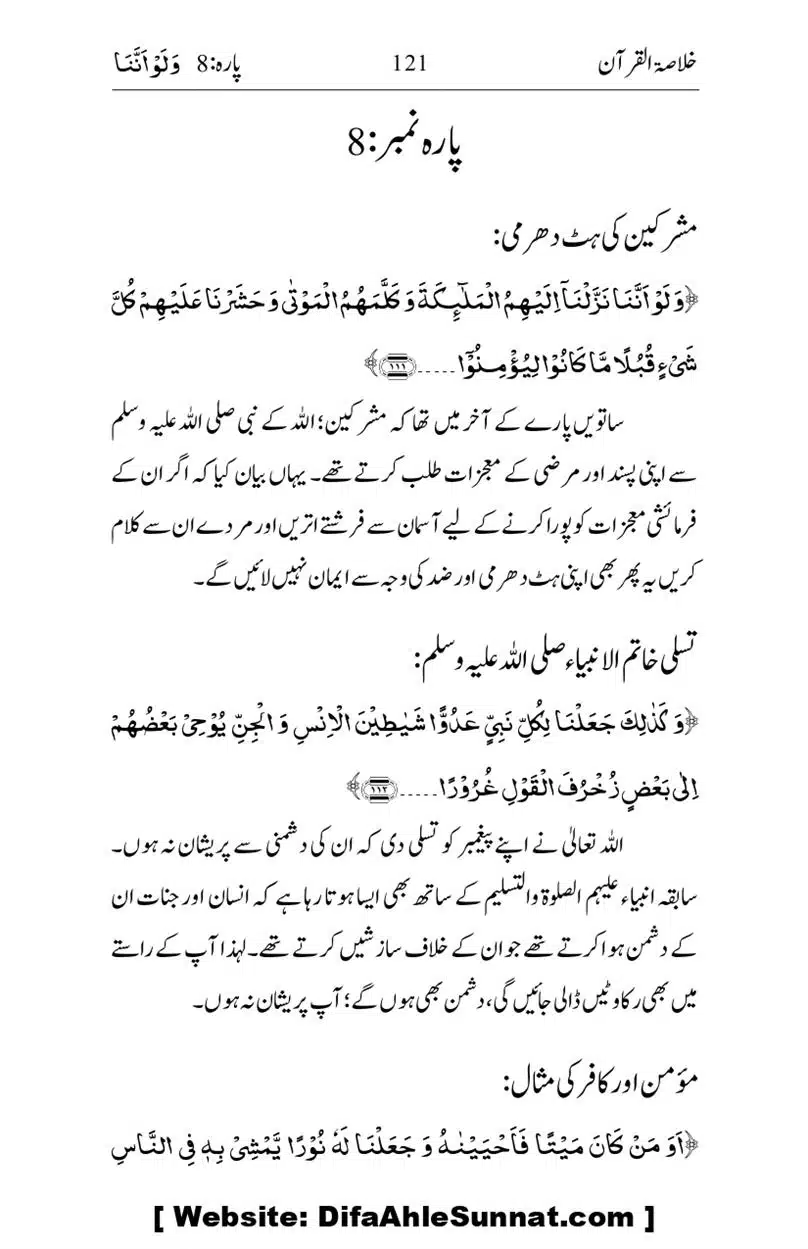 خلاصۃ القرآن 121 پارہ:8 وَلَوْ اَنَّنَا
پارہ نمبر:8
مشرکین کی ہٹ دھرمی:
﴿وَ لَوْ اَنَّنَا نَزَّلْنَاۤ اِلَيْهِمُ الْمَلٰٓئِكَةَ وَ كَلَّمَهُمُ الْمَوْتٰى وَ حَشَرْنَا عَلَيْهِمْ كُلَّ
شَیْءٍ قُبُلًا مَّا كَانُوْا لِيُؤْمِنُوْۤا.....﴿۱۱۱﴾﴾
ساتویں پارے کے آخر میں تھا کہ مشرکین؛ اللہ کے نبی صلی اللہ علیہ وسلم
سے اپنی پسند اور مرضی کے معجزات طلب کرتے تھے۔ یہاں بیان کیا کہ اگر ان کے
فرمائشی معجزات کو پورا کرنے کے لیے آسمان سے فرشتے اتریں اور مردے ان سے کلام
کریں یہ پھر بھی اپنی ہٹ دھرمی اور ضد کی وجہ سے ایمان نہیں لائیں گے۔
تسلی خاتم الانبیاء صلی اللہ علیہ وسلم:
﴿وَ كَذٰلِكَ جَعَلْنَا لِكُلِّ نَبِيٍّ عَدُوًّا شَيٰطِيْنَ الْاِنْسِ وَ الْجِنِّ يُوْحِیْ بَعْضُهُمْ
اِلٰى بَعْضٍ زُخْرُفَ الْقَوْلِ غُرُوْرًا.....﴿۱۱۲﴾﴾
اللہ تعالیٰ نے اپنے پیغمبر کو تسلی دی کہ ان کی دشمنی سے پریشان نہ ہوں۔
سابقہ انبیاء علیہم الصلوۃ والتسلیم کے ساتھ بھی ایسا ہوتا رہا ہے کہ انسان اور جنات ان
کے دشمن ہوا کرتے تھے جو ان کے خلاف سازشیں کرتے تھے۔ لہذا آپ کے راستے
میں بھی رکاوٹیں ڈالی جائیں گی، دشمن بھی ہوں گے؛ آپ پریشان نہ ہوں۔
مؤمن اور کافر کی مثال:
﴿اَوَ مَنْ كَانَ مَيْتًا فَاَحْيَيْنٰهُ وَ جَعَلْنَا لَهٗ نُوْرًا يَّمْشِیْ بِهٖ فِی النَّاسِ
[ Website: DifaAhleSunnat.com ]